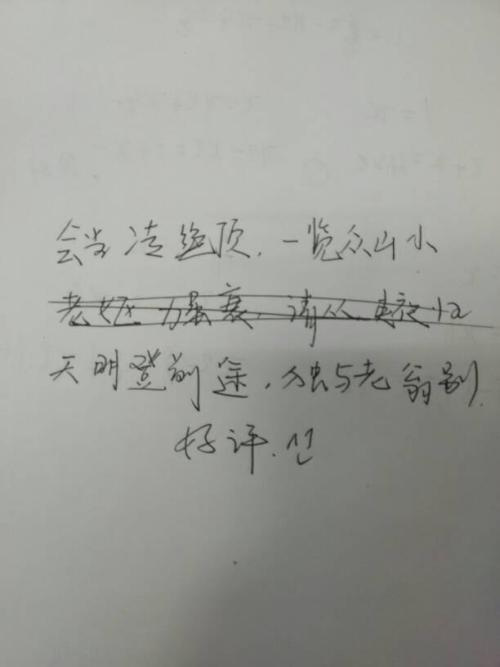 会当凌绝顶，一览众山小
老妪力虽衰，请从吏夜归
天明登前途，独与老翁别
好评.